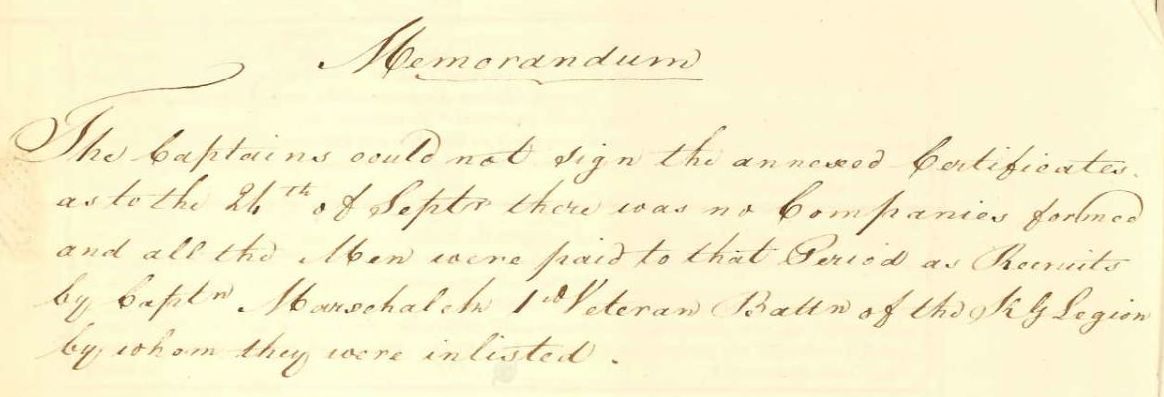 Memorandum
The Captains could not sign the annexed Certificates.
as to the 24th of Septr there was no Companies formed
and all the Men were paid to that Period as Recruits
by Captn Marschalck 1st Veteran Battn of the KG Legion
by whom they were inlisted.